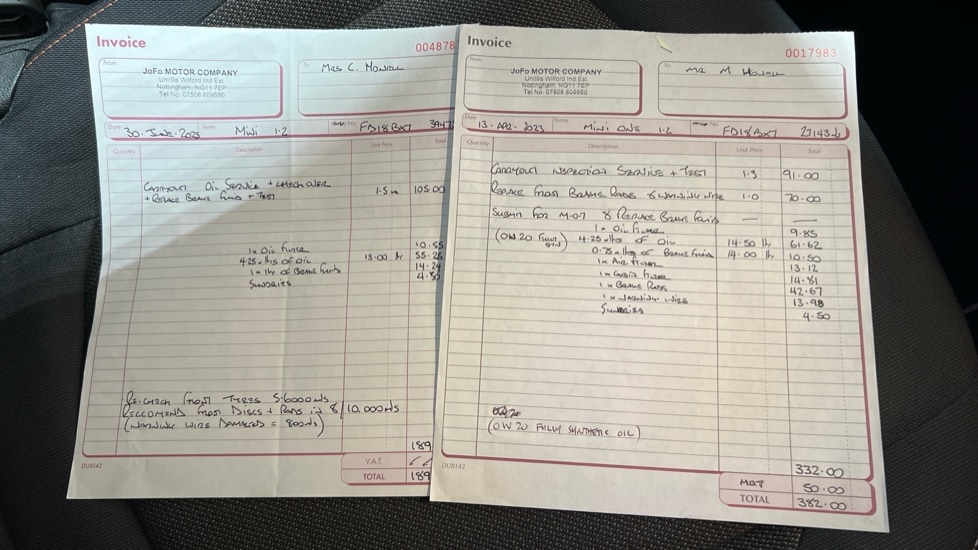 Invoice
004878
From
To
Mrs C. Howell
JoFo MOTOR COMPANY
Unit 9a Wilford Ind Est
Nottingham, NG11 7EP
Tel No. 07508 609550
Date 30. June. 2025 Terms Mini 1.2 FD18 BX7
Quantity Description Unit Price Total
Carryout Oil Service + Check over
+ Replace Brake Fluid + Test 1.5 105.00
1x Oil Filter 10.55
4.25 x ltrs of Oil 13.00 lt 55.25
1 x ltr of Brake Fluid 14.24
Sundries 4.50
Re-check Front Tyres 5-6000 mls
Reccomend Front Discs + Pads in 8/10.000 mls
(Warning Wire Damaged = 800 mls)
189
V.A.T.
TOTAL 189
DU8142
Invoice
0017983
From
To
Mr M Howell
JoFo MOTOR COMPANY
Unit 9a Wilford Ind Est
Nottingham, NG11 7EP
Tel No. 07508 609550
Date 13. APR. 2023 Terms Mini ONE 1.2 FD18 BX7 27143
Quantity Description Unit Price Total
Carryout Inspection Service + Test 1.3 91.00
Replace Front Brake Pads & Warning Wire 1.0 70.00
Submit For M.O.T & Replace Brake Fluid — —
1x Oil Filter 9.85
(OW 20 Fully Syn) 4.25 x ltrs of Oil 14.50 ltr 61.62
0.75 x ltrs of Brake Fluid 14.00 ltr 10.50
1x Air Filter 13.12
1x Cabin Filter 14.81
1x Brake Pads 42.67
1x Warning Wire 13.98
Sundries 4.50
(OW 20 FULLY SYNTHETIC OIL)
332.00
MOT 50.00
TOTAL 382.00
DU8142